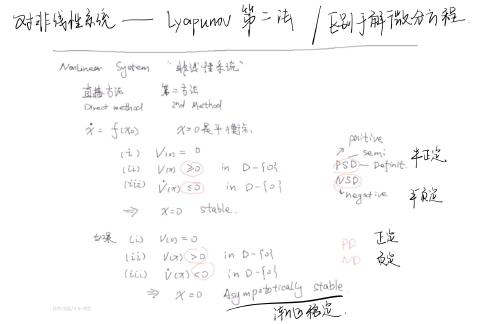 对非线性系统 —— Lyapunov 第二法 / 区别于解微分方程
Nonlinear System "非线性系统"
直接方法 第二方法
Direct method 2nd Method
ẋ = f(x) x=0是平衡点.
(i) V(0) = 0
(ii) V(x) ≥0 in D-{0}
(iii) V̇(x) ≤0 in D-{0}
⇒ x=0 stable.
positive
semi
PSD — Definit. 半正定
NSD
negative 半负定
如果 (i) V(0)=0
(ii) V(x) >0 in D-{0}
(iii) V̇(x) <0 in D-{0}
⇒ x=0 Asympotatically stable
渐近稳定.
PD 正定
ND 负定